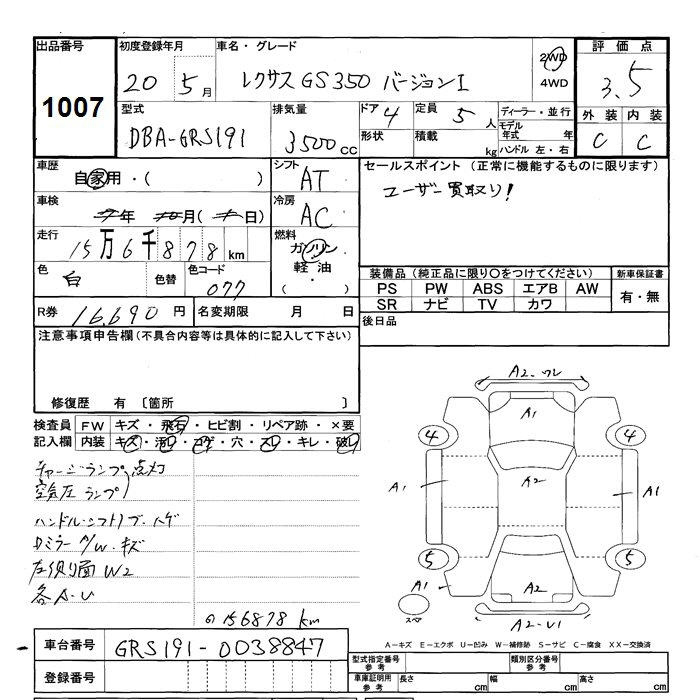 出品番号 初度登録年月 車名・グレード 評価点
1007 20 5月 レクサス GS350 バージョンI 2WD 4WD 3.5
型式 排気量 ドア 4 定員 5人 ディーラー・並行 外装 内装
DBA-GRS191 3500cc 形状 積載 kg モデル年式 年 C C
ハンドル 左・右
車歴 シフト セールスポイント (正常に機能するものに限ります)
自家用・( ) AT ユーザー買取り!
車検 冷房
年 月(日) AC
走行 燃料
15万6千878km ガソリン
色 色替 色コード 軽油 装備品(純正品に限り○をつけてください) 新車保証書
白 077 ・( ) PS PW ABS エアB AW 有・無
SR ナビ TV カワ
R券 16,690円 名変期限 月 日 後日品
注意事項申告欄(不具合内容等は具体的に記入して下さい)
修復歴 有 〔箇所 〕
検査員 FW キズ・飛石・ヒビ割・リペア跡・×要
記入欄 内装 キズ・汚レ・コゲ・穴・スレ・キレ・破レ
チャージランプ 点灯
空気圧ランプ
ハンドル・シフトノブ・ハゲ
Dミラー A/W・キズ
左側面 W2
各A・U
156878 km
A2-ワレ
A1
4 4
A1 A2 A1
5 5
A1 A2
スペア A2-U1
A-キズ E-エクボ U-凹み W-補修跡 S-サビ C-腐食 XX-交換済
車台番号 GRS191-0038847 型式指定番号 参考 類別区分番号 参考
登録番号 車庫証明用 参考 長さ cm 幅 cm 高さ cm